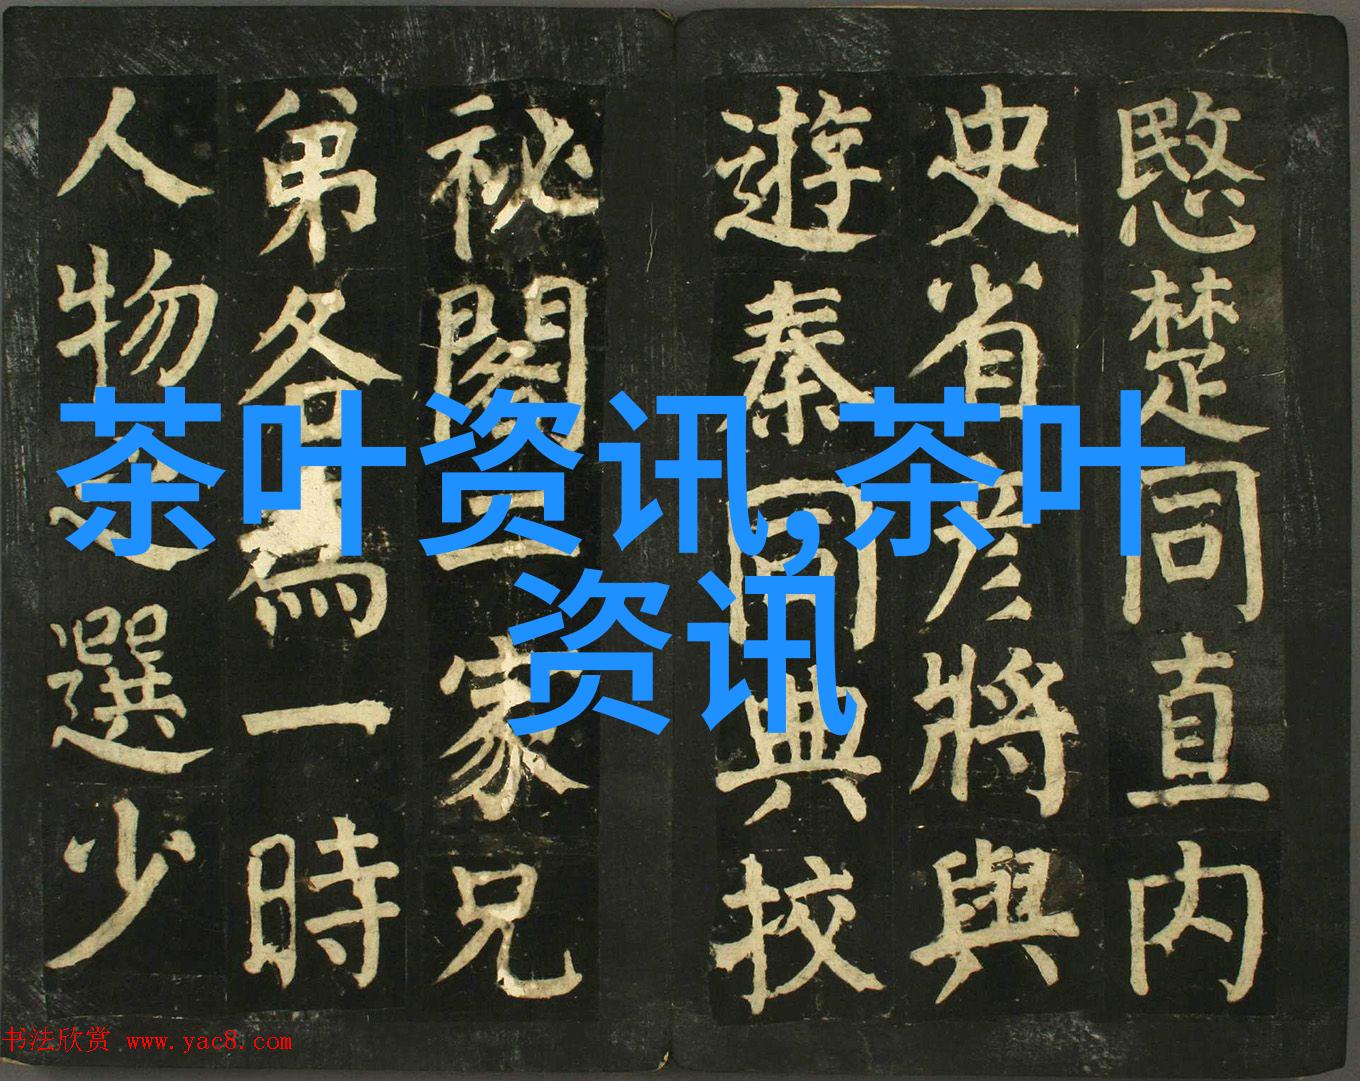 愍楚同直内
史省彦將與
遊秦同典校
祕閣二家兄
弟各為一時
人物之選少
茶叶资讯,茶叶
资讯
书法欣赏 www.yac8.com